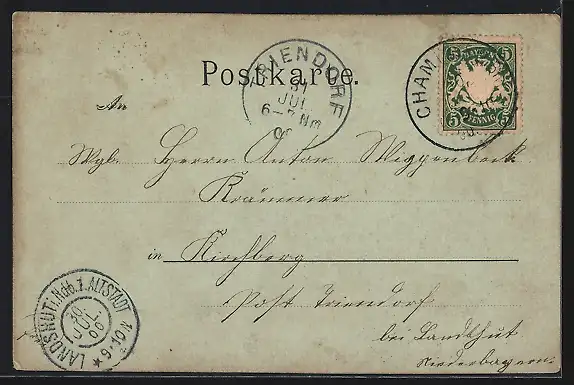 Postkarte.
TRIENDORF
31
JUL.
6-7 Nm
00
CHAM
5 BAYERN 5
5 PFENNIG 5
An
Wgb. Herrn Anton Wiggenbeck
Krämmer
in Kirchberg
Post Triendorf
bei Landthut
Niederbayern
LANDSHUT i. Ndb. 1. ALTSTADT
30
JUL.
00
N 9-10